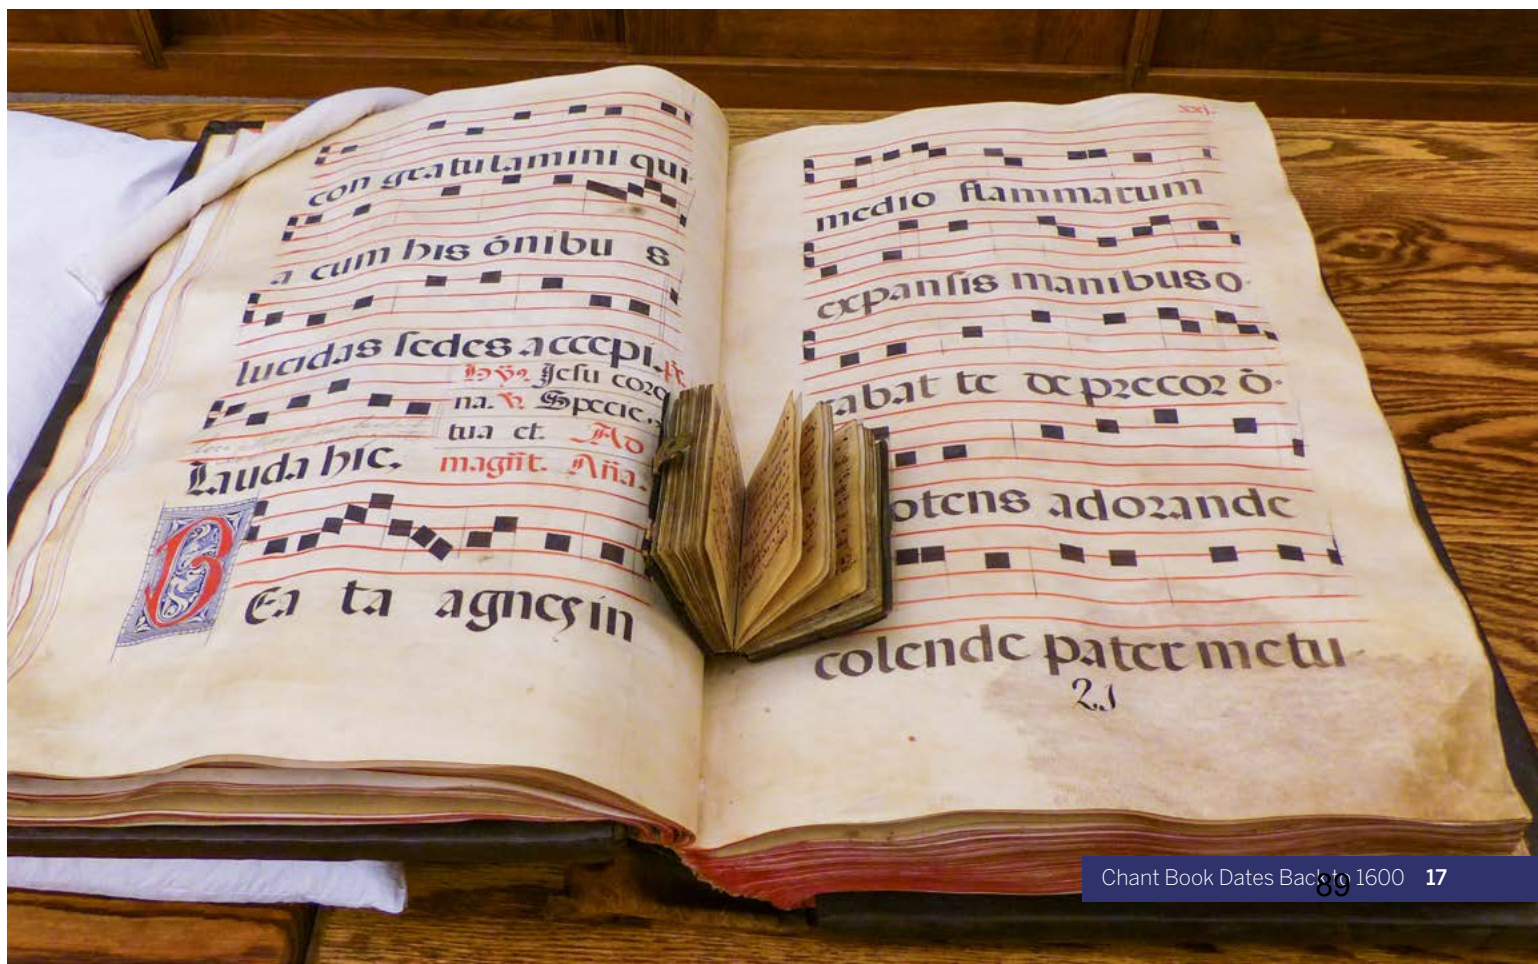 con gratulamini qui
a cum his ōnibu s
lucidas ſedes accepi.
Jeſu coro
na. ℣. Specie.
tua et. Ad
Lauda hic. magn̄t. Aña.
BEa ta agnes in
xxj.
medio flammarum
expanſis manibus o
rabat te deprecor ō
otens adorande
colende pater metu
21
Chant Book Dates Back to 1600 17
89